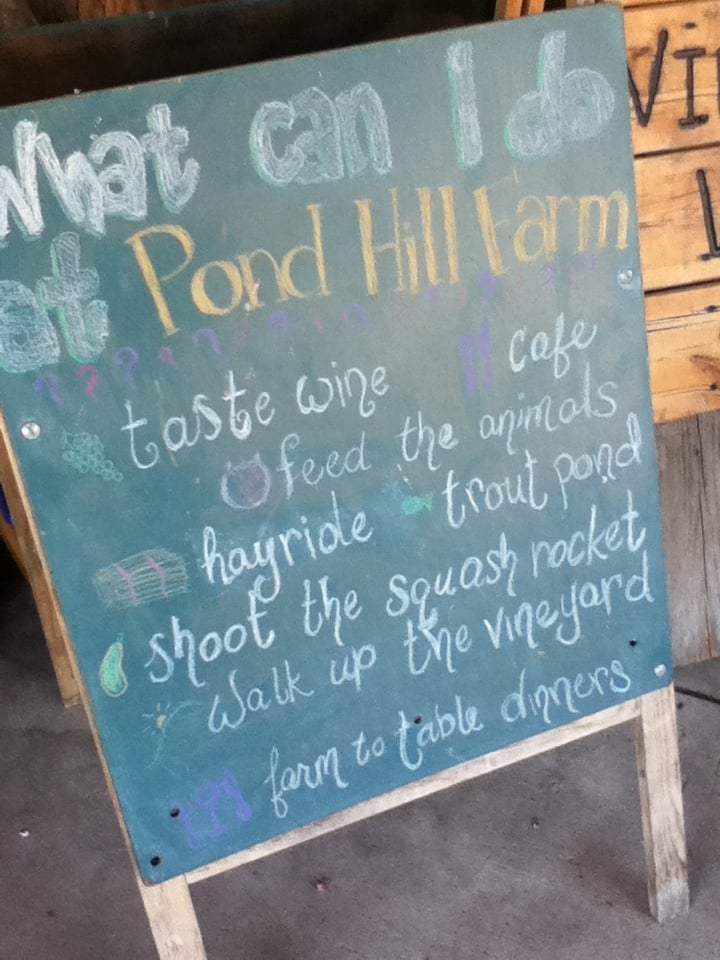 What can I do
at Pond Hill Farm
taste wine cafe
feed the animals
hayride trout pond
shoot the squash rocket
Walk up the vineyard
farm to table dinners